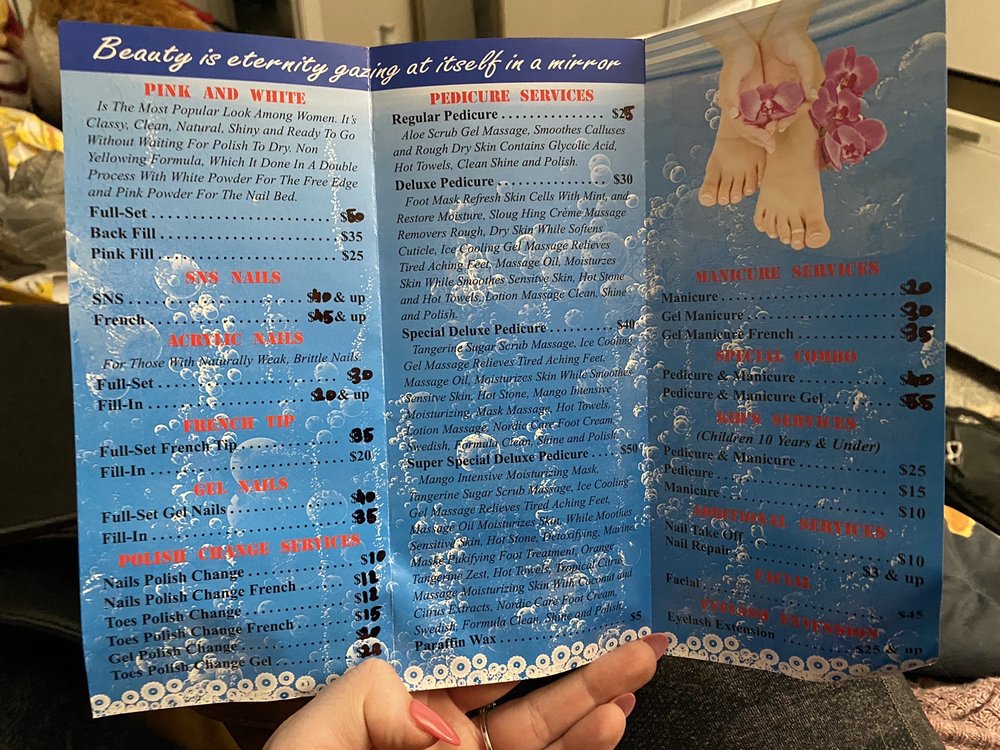 Beauty is eternity gazing at itself in a mirror
PINK AND WHITE
Is The Most Popular Look Among Women. It's
Classy, Clean, Natural, Shiny and Ready To Go
Without Waiting For Polish To Dry. Non
Yellowing Formula, Which It Done In A Double
Process With White Powder For The Free Edge
and Pink Powder For The Nail Bed.
Full-Set ........................ $50
Back Fill ........................ $35
Pink Fill ........................ $25
SNS NAILS
SNS ........................ $40 & up
French ........................ $45 & up
ACRYLIC NAILS
For Those With Naturally Weak, Brittle Nails.
Full-Set ........................ 30
Fill-In ........................ 20 & up
FRENCH TIP
Full-Set French Tip ........................ 35
Fill-In ........................ $20
GEL NAILS
Full-Set Gel Nails ........................ $40
Fill-In ........................ 35
POLISH CHANGE SERVICES
Nails Polish Change ........................ $10
Nails Polish Change French ........................ $12
Toes Polish Change ........................ $12
Toes Polish Change French ........................ $15
Gel Polish Change ........................
Toes Polish Change Gel ........................
PEDICURE SERVICES
Regular Pedicure ........................ $25
Aloe Scrub Gel Massage, Smoothes Calluses
and Rough Dry Skin Contains Glycolic Acid,
Hot Towels, Clean Shine and Polish.
Deluxe Pedicure ........................ $30
Foot Mask Refresh Skin Cells With Mint, and
Restore Moisture, Sloug Hing Crème Massage
Removers Rough, Dry Skin While Softens
Cuticle, Ice Cooling Gel Massage Relieves
Tired Aching Feet, Massage Oil, Moisturzes
Skin While Smoothes Sensitve Skin, Hot Stone
and Hot Towels, Lotion Massage Clean, Shine
and Polish.
Special Deluxe Pedicure ........................ $40
Tangerine Sugar Scrub Massage, Ice Cooling
Gel Massage Relieves Tired Aching Feet,
Massage Oil, Moisturizes Skin While Smoothes
Sensitve Skin, Hot Stone, Mango Intensive
Moisturizing, Mask Massage, Hot Towels,
Lotion Massage, Nordic Care Foot Cream,
Swedish, Formula Clean, Shine and Polish.
Super Special Deluxe Pedicure ........................ $50
Mango Intensive Moisturizing Mask,
Tangerine Sugar Scrub Massage, Ice Cooling
Gel Massage Relieves Tired Aching Feet,
Massage Oil Moisturizes Skin, While Moothes
Sensitive Skin, Hot Stone, Detoxifying, Marine
Maske Pukifying Foot Treatment, Orange
Tangerine Zest, Hot Towels, Tropical Citrus
Massage Moisturizing Skin With Coconut and
Citrus Extracts, Nordic Care Foot Cream,
Swedish, Formula Clean, Shine and Polish.
Paraffin Wax ........................ $5
MANICURE SERVICES
Manicure ........................
Gel Manicure ........................ 30
Gel Manicure French ........................ 35
SPECIAL COMBO
Pedicure & Manicure ........................ $40
Pedicure & Manicure Gel ........................ 55
KID'S SERVICES
(Children 10 Years & Under)
Pedicure & Manicure ........................ $25
Pedicure ........................ $15
Manicure ........................ $10
ADDITIONAL SERVICES
Nail Take Off ........................ $10
Nail Repair ........................ $3 & up
FACIAL
Facial ........................ $45
EYELASH EXTENSION
Eyelash Extension ........................ $25 & up